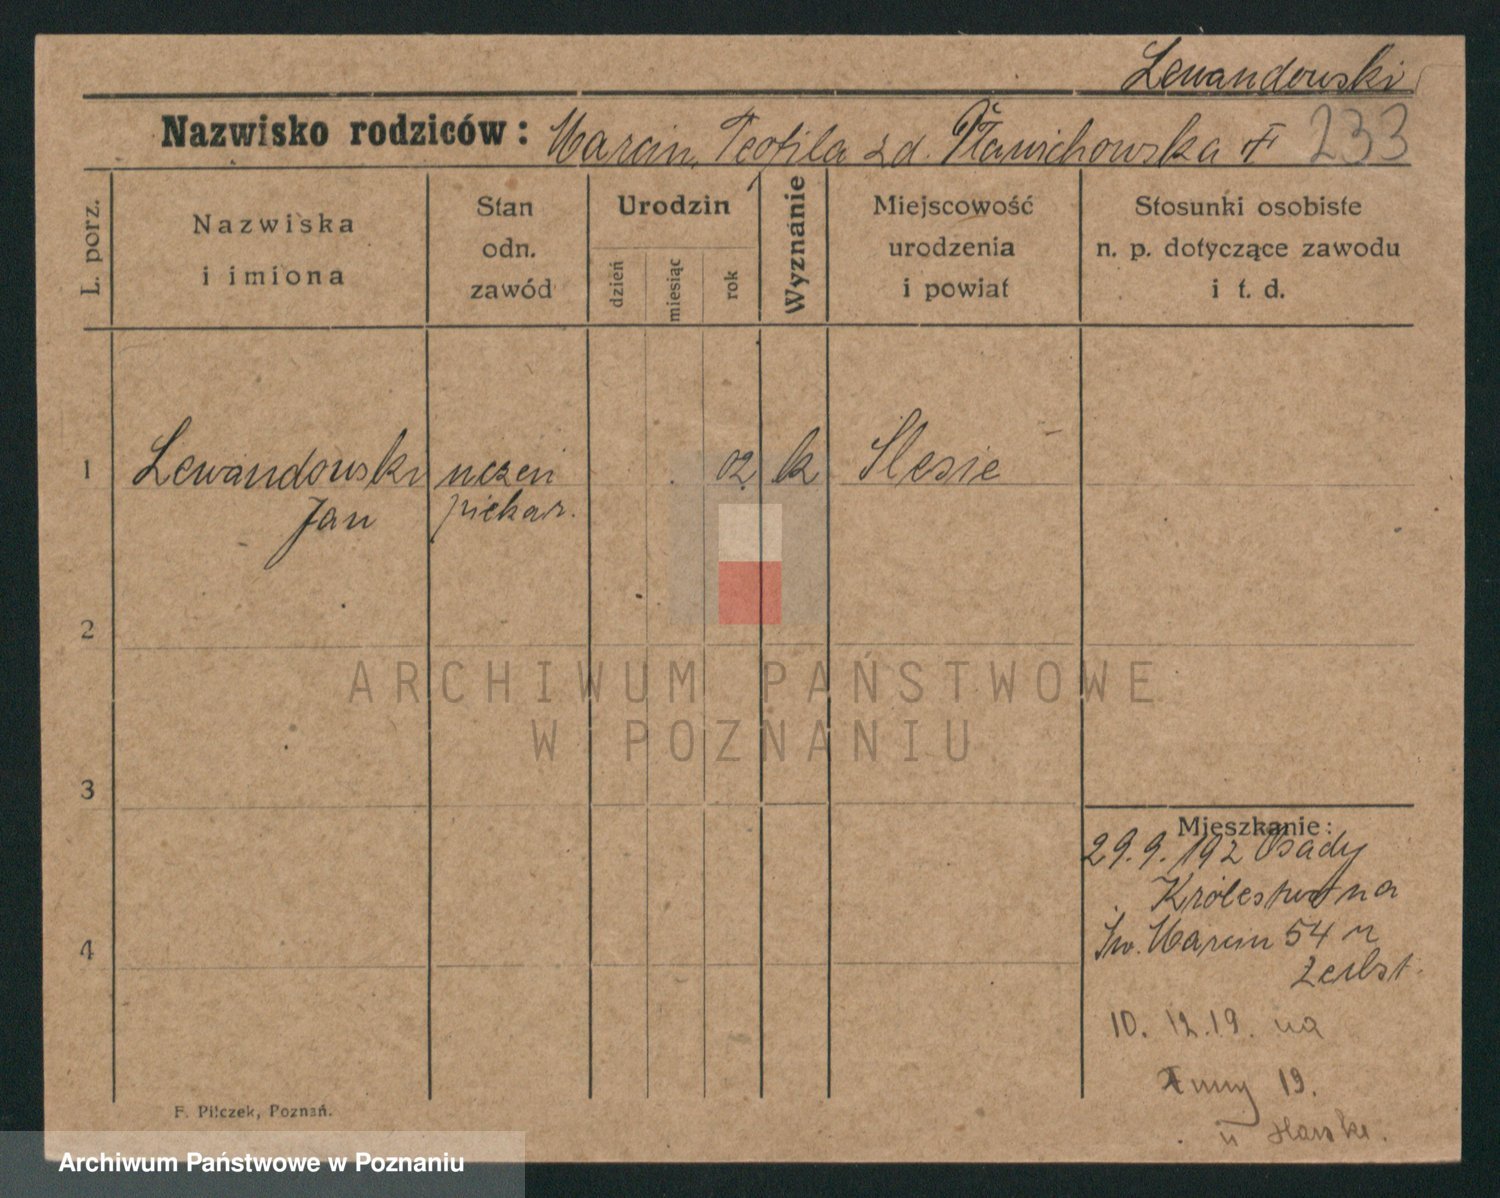 Lewandowski
Nazwisko rodziców: Marcin, Teofila z d. Pławichowska 233
L. porz.
Nazwiska
i imiona
Stan
odn.
zawód
Urodzin
dzień
miesiąc
rok
Wyznanie
Miejscowość
urodzenia
i powiat
Stosunki osobiste
n. p. dotyczące zawodu
i t. d.
1 Lewandowski uczeń 02 k Slesie
Jan piekar.
2
ARCHIWUM PAŃSTWOWE
W POZNANIU
3
Mieszkanie:
29.9.192 Osady
Królestwo na
4
Św. Marcin 54 u
Zerbst.
10. 12. 19. na
19.
u
F. Pilczek, Poznań.
Archiwum Państwowe w Poznaniu